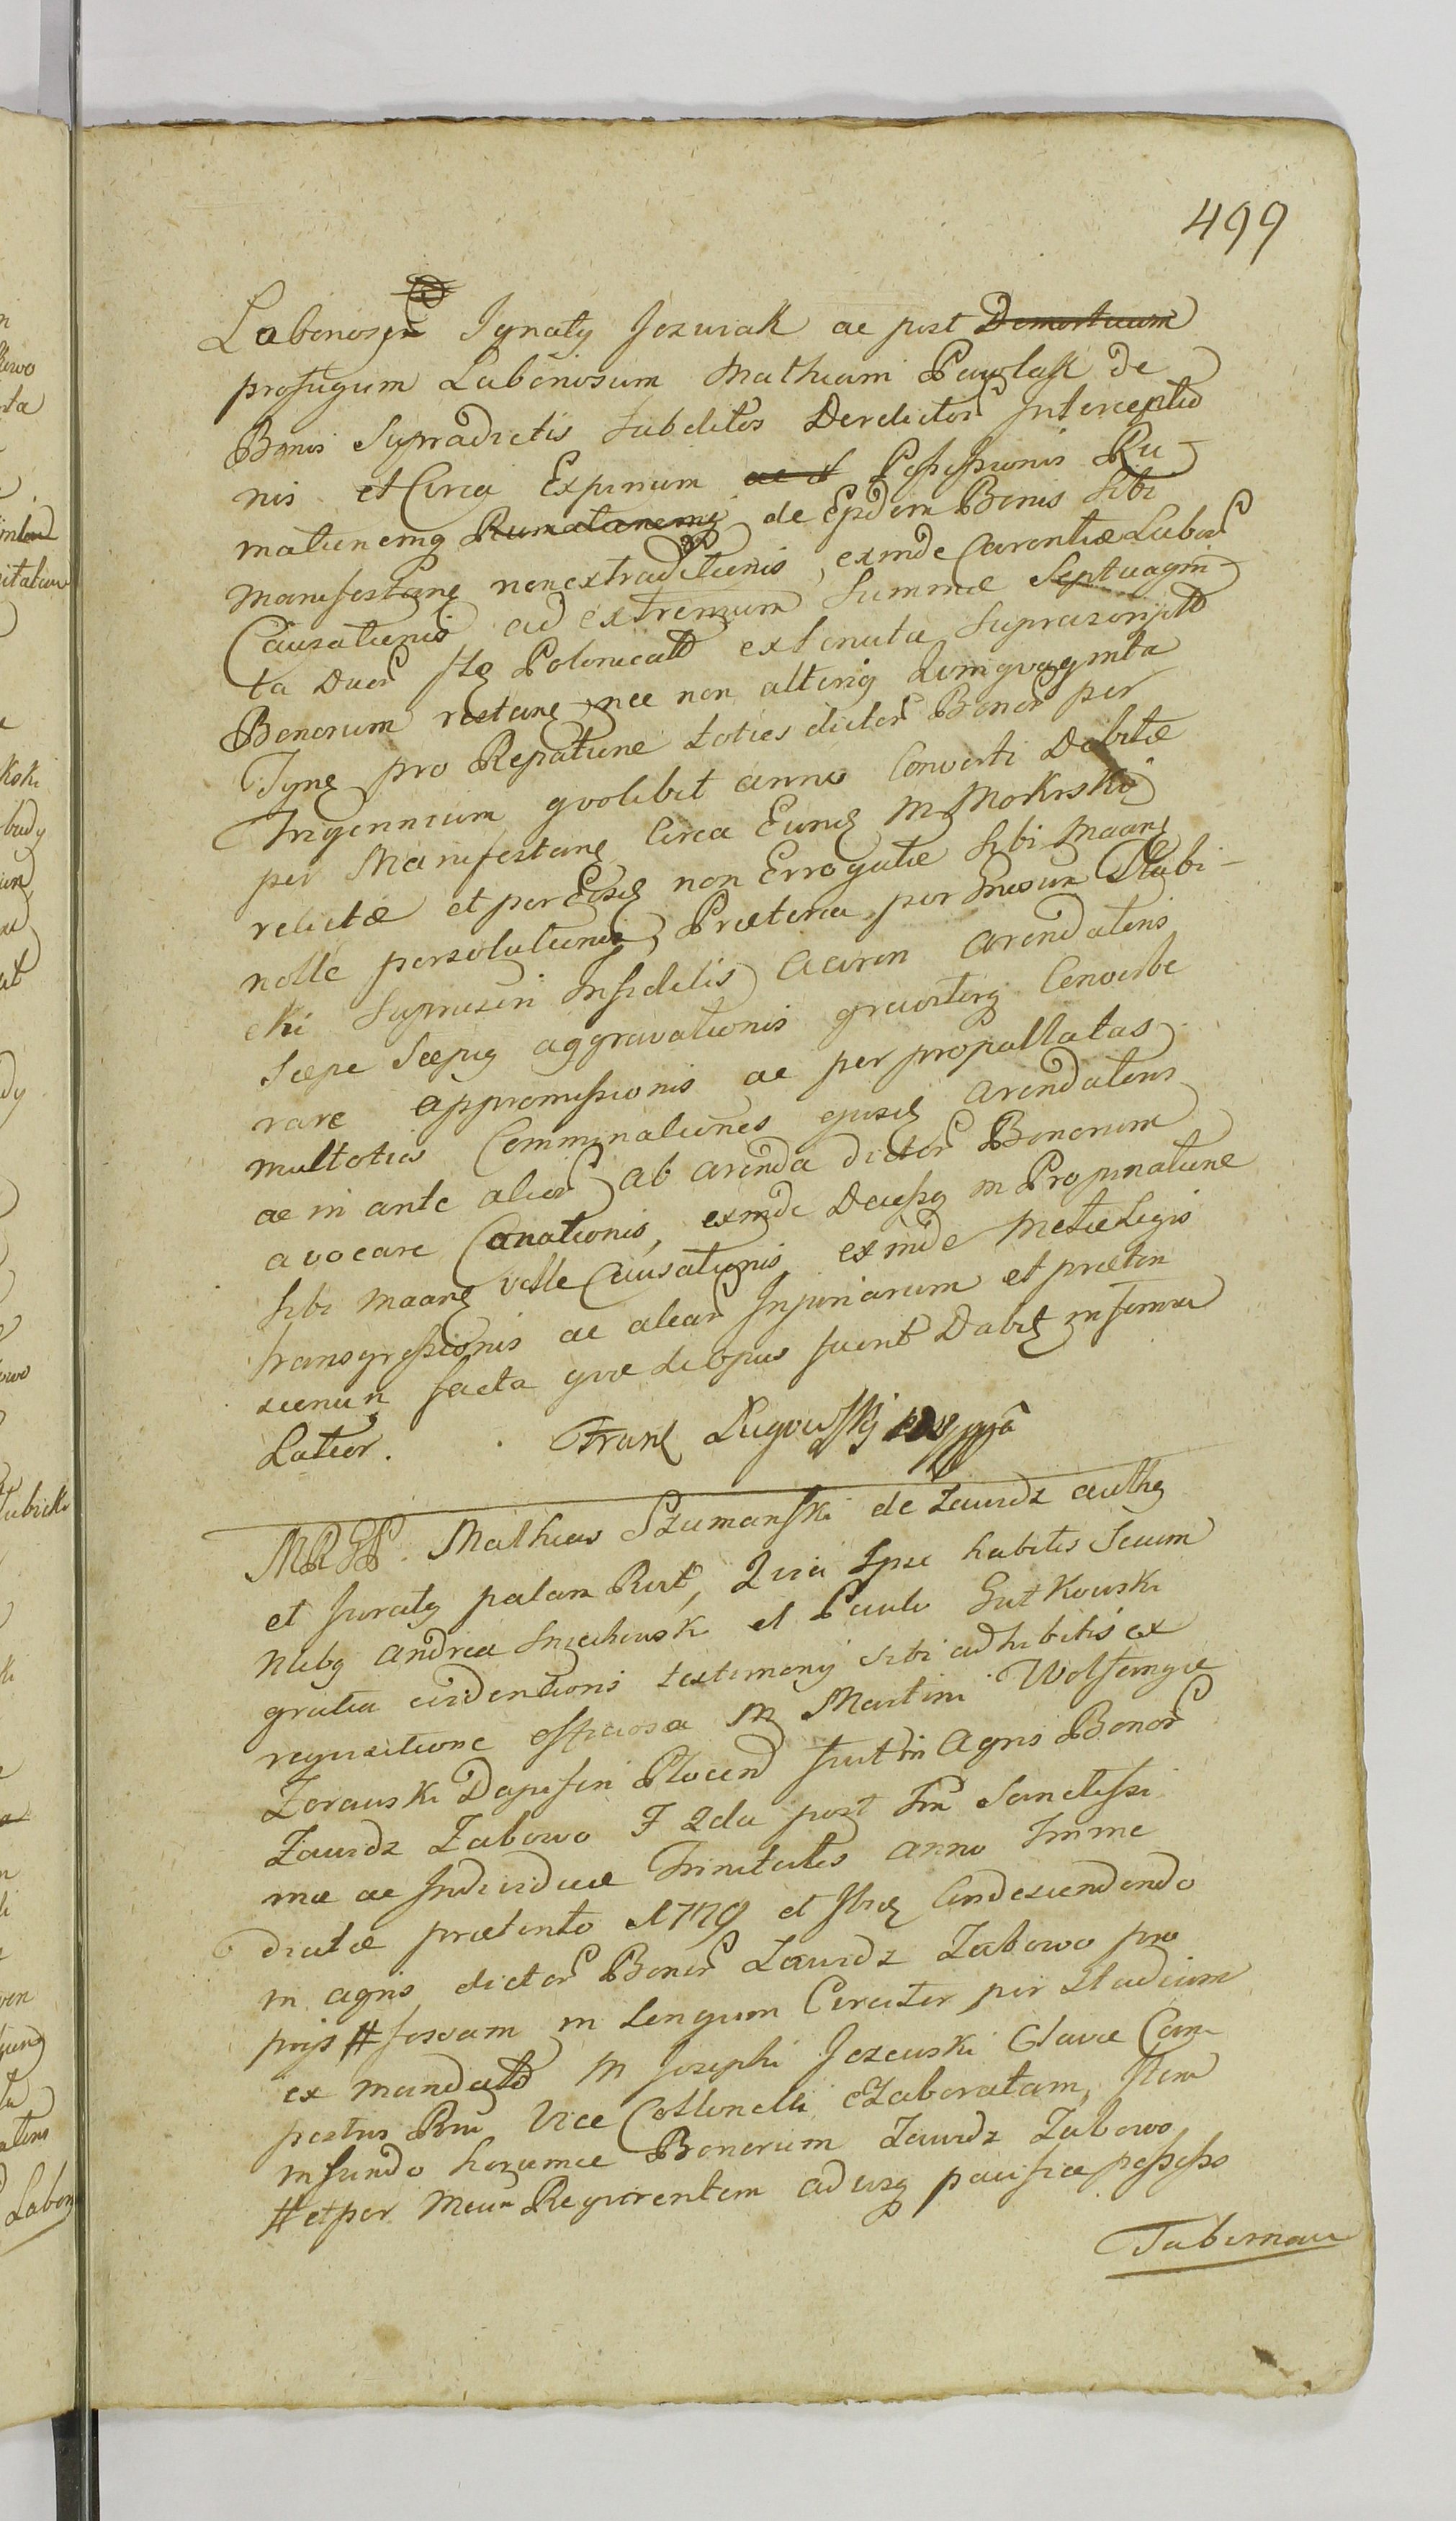 499
Laboriosum Ignaty Jozwiak ac post Demortuum
profugum Laboriosum Mathiam Pawlak de
Bonis Supradictis Subditos Derelictor Interceptio
nis et Circa Expirium ac d Possessionis Ru
mationemq Rumationemq de Ejsdem Bonis Sibi
Manifestang nonextraditionis, exinde Carentiae Labor
Causationis ad extremum Summae Septuagin
ta Duor flg Polonicalt extenuta Suprascriptt
Bonorum restang nec non alterig Quinquaginta
Tynf pro Repatione toties dictor Bonor per
Triennium quolibet anno Converti Debitae
per Manifestang Circa Eung M Mokrski
relictae et per Eosd non Errogatae Sibi Maang
nolle persolutionis, Praeterea per Eneum Dłubi-
cki Suprascri Infidelis Aaron Arendatoris
Saepe Saepig aggravationis graviterq Cenverbe
rare appromissionis ac per propallatas
multoties Comminationes ejusd Arendatoris
ac in ante alior ab arenda dictor Bonorum
avocare Conationis, exinde Decessq in Propinatione
Sibi Maang velle Causationis exinde Metae Legis
transgressionis ac aliar Injuriarum et praeten
sionum facta quae Si opus fuerit Dabit in forma
Latior. Franc Ługowski mpp
MRGP. Mathias Szumanski de Zawidz authg
et Juratg palam Rlt, Quia Ipse habitis Secum
Nlibg Andrea Snieckowski et Paulo Gutkowski
gratia evidentioris testimony Sibi adhibitis ex
requisitione officiosa M Martini Wolfango
Zorawski Dapiferi Plocen fuit in Agris Bonor
Zawidz Zabowo F 2da post Fm Sanctissi
mae ac Individuae Trinitatis anno Imme
diate praeterito 1779 et Ibid Condescendendo
in agris dictor Bonor Zawidz Zabowo pro
prys # fossam in Longum Circiter per Stadium
ex mandato M Josephi Jezewski Clavae Cam
pestris Rni Vice Collonelli Elaboratam, Item
in fundo horumce Bonorum Zawidz Zabowo
# et per Meum Requirentem ad usq pacifice possesso
Tabernam